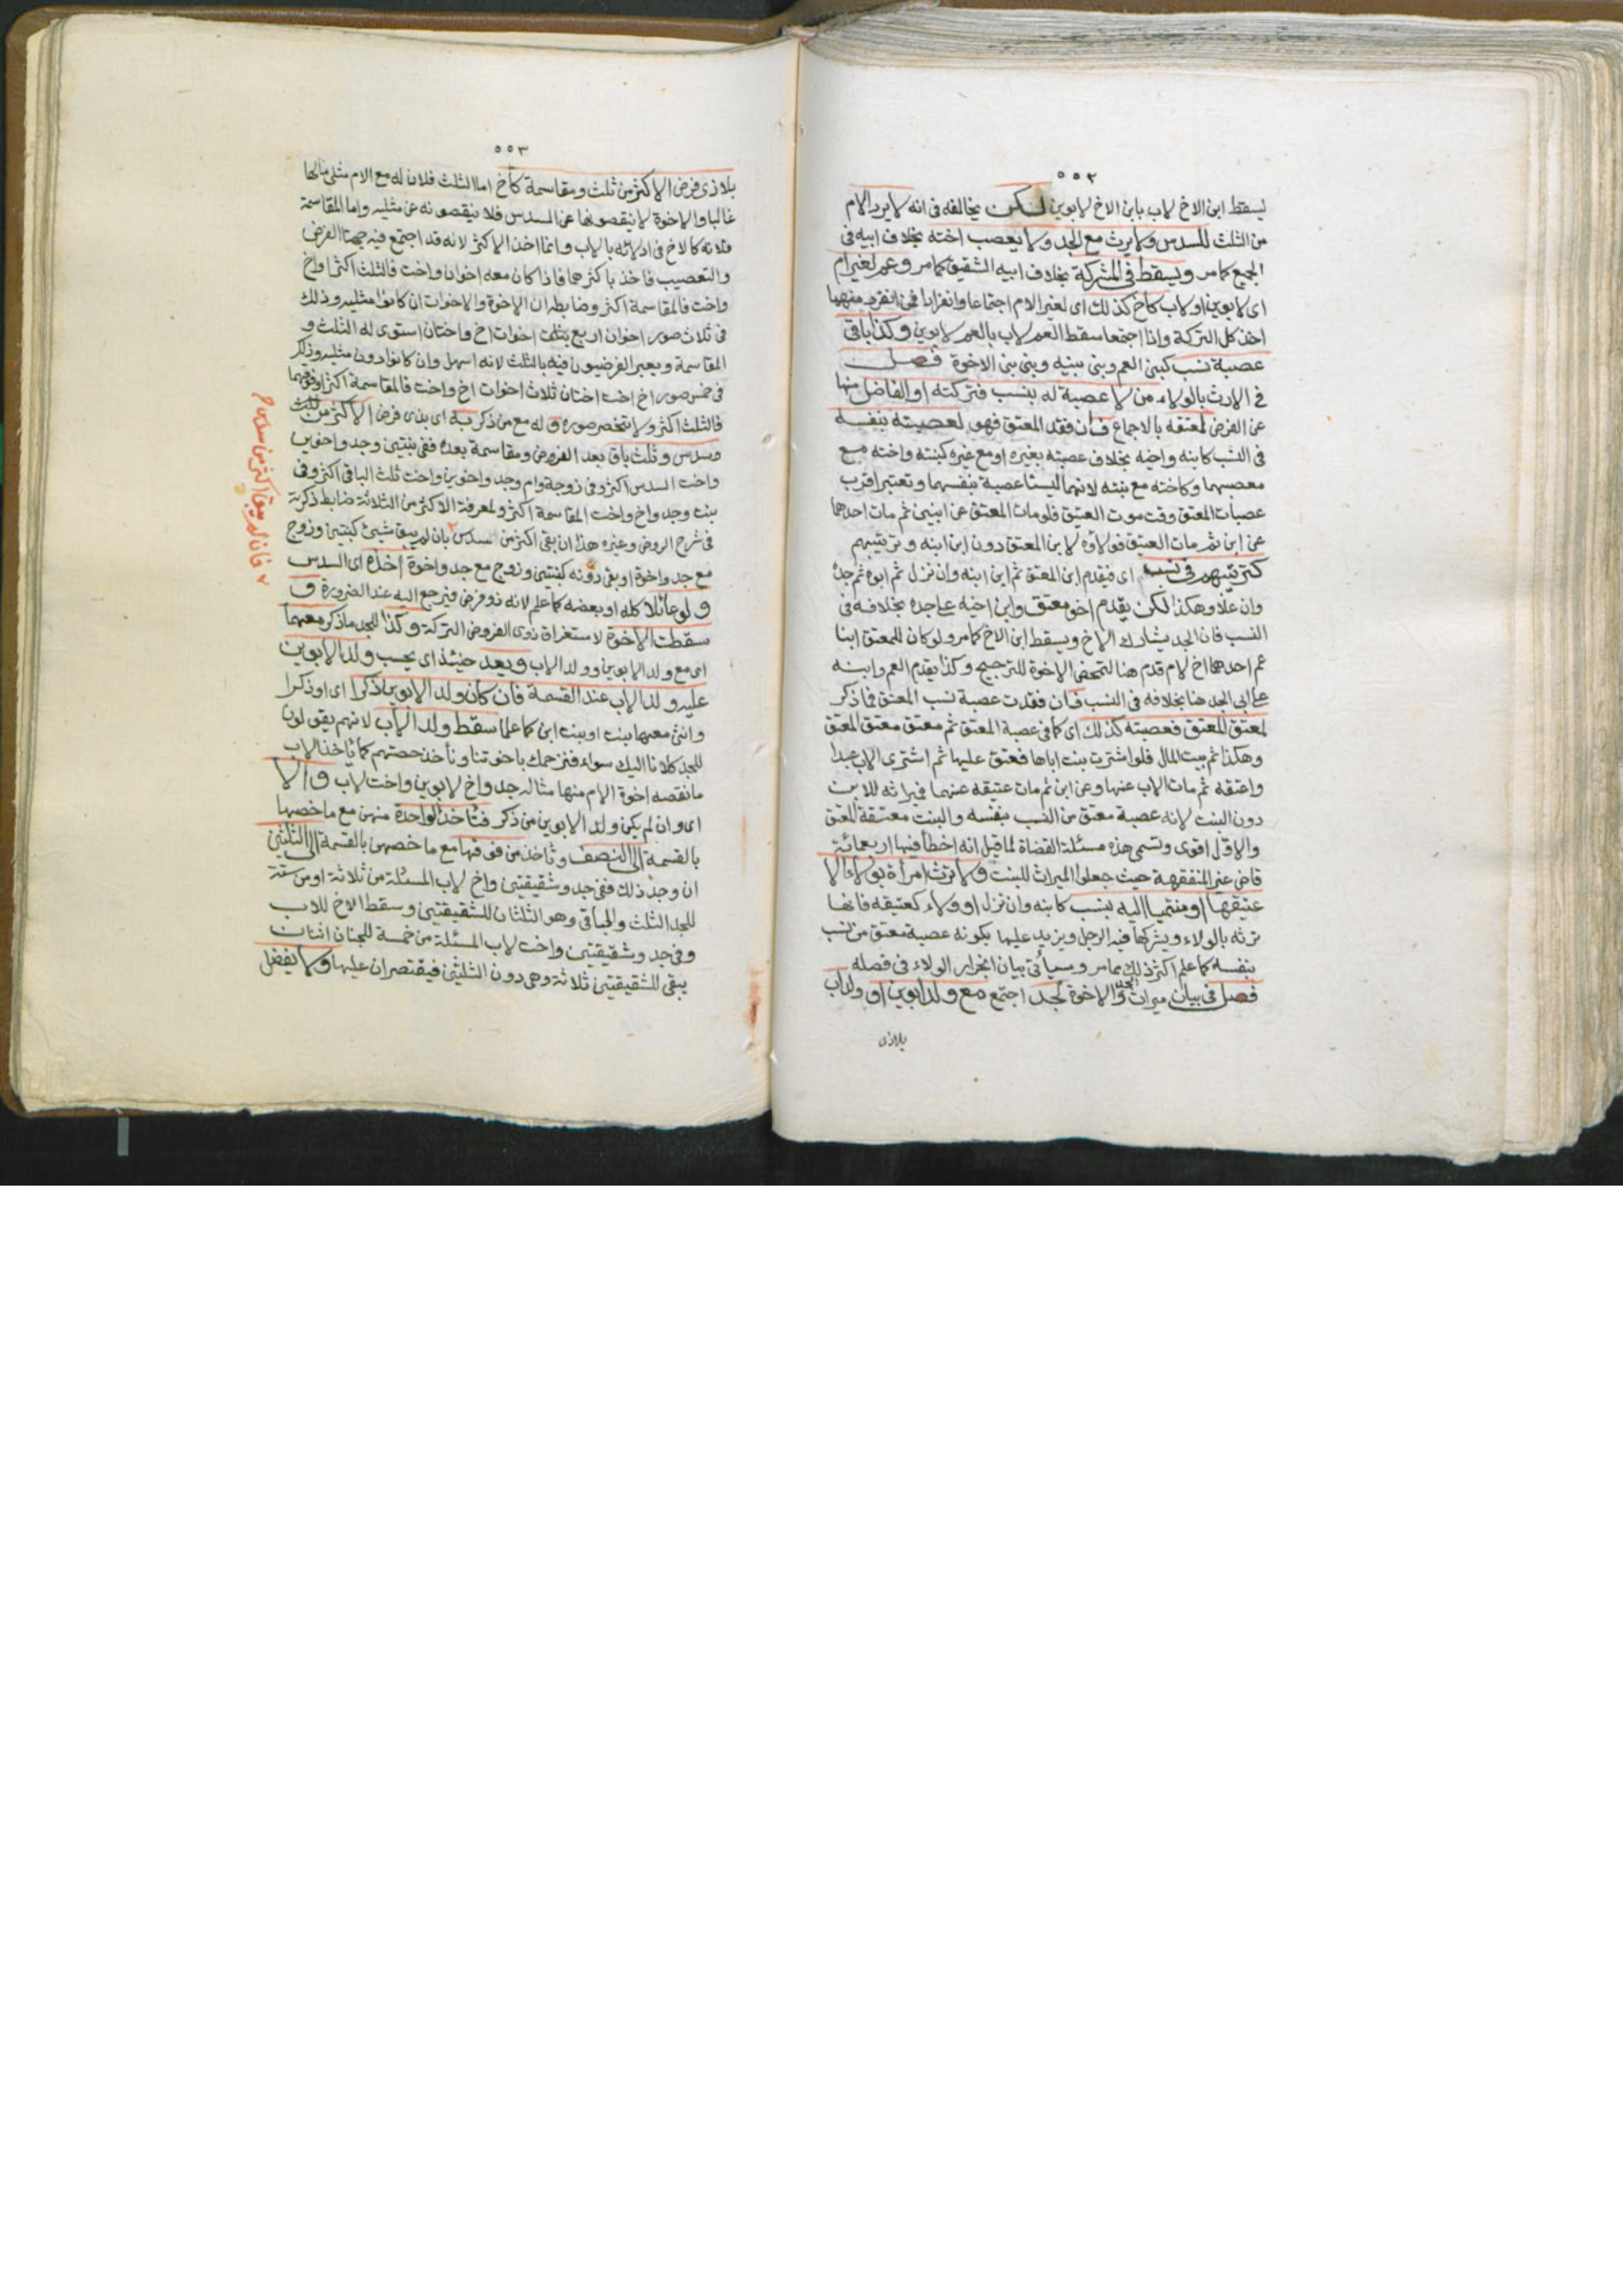 ٥٥٢
ليسقط ابن الاخ لاب بابن الاخ لابوين لكن يخالفه فى انه لا يرد الام
من الثلث للسدس ولا يرث مع الجد ولا يعصب اخته بخلاف ابيه فى
الجميع كما مر ويسقط فى المشركة بخلاف ابيه الشقيق كما مر وعم لغير ام
اى لابوين او لاب كأخ كذلك اى لغير الام اجتماعا وانفرادا فمن انفرد منهما
اخذ كل التركة واذا اجتمعا سقط العم لاب بالعم لابوين وكذا باقى
عصبة نسب كبنى العم وبنى بنيه وبنى بنى الاخوة فصل
فى الارث بالولاء من لا عصبة له بنسب فتركته او الفاضل منها
عن الفرض لمعتقه بالاجماع فان فقد المعتق فهو لعصبته بنفسه
فى النسب كابنه واخيه بخلاف عصبته بغيره او مع غيره كبنته واخته مع
معصبهما وكاخته مع بنته لانهما ليستا عصبة بنفسهما وتعتبر اقرب
عصبات المعتق وقت موت العتيق فلو مات المعتق عن ابنين ثم مات احدهما
عن ابن ثم مات العتيق فولاؤه لابن المعتق دون ابن ابنه وترتيبهم
كترتيبهم فى نسب اى فيقدم ابن المعتق ثم ابن ابنه وان نزل ثم ابوه ثم جده
وان علا وهكذا لكن يقدم اخو معتق وابن اخيه على جده بخلافه فى
النسب فان الجد يشارك الاخ ويسقط ابن الاخ كما مر ولو كان للمعتق ابنا
عم احدهما اخ لام قدم هنا لتمحض الاخوة للترجيح وكذا يقدم العم وابنه
على ابى الجد هنا بخلافه فى النسب فان فقدت عصبة نسب المعتق فما ذكر
لمعتق المعتق فعصبته كذلك اى كما فى عصبة المعتق ثم معتق معتق المعتق
وهكذا ثم بيت المال فلو اشترت بنت اباها فعتق عليها ثم اشترى الاب عبدا
واعتقه ثم مات الاب عنها وعن ابن ثم مات عتيقه عنهما فميراثه للابن
دون البنت لانه عصبة معتق من النسب بنفسه والبنت معتقة المعتق
والاول اقوى وتسمى هذه مسئلة القضاة لما قيل انه اخطأ فيها اربعمائة
قاض غير المتفقهة حيث جعلوا الميراث للبنت ولا ترث امرأة بولاء الا
عتيقها او منتميا اليه بنسب كابنه وان نزل او ولاء كعتيقه فانها
ترثه بالولاء ويشركها فيه الرجل ويزيد عليها بكونه عصبة معتق من نسب
بنفسه كما علم اكثر ذلك مما مر وسيأتى بيان انجرار الولاء فى فصله
فصل فى بيان ميراث الجد والاخوة لجد اجتمع مع ولد ابوين او ولد اب
بلا ذى
٥٥٣
بلا ذى فرض الاكثر من ثلث ومقاسمة كأخ اما الثلث فلان له مع الام مثلى مالها
غالبا والاخوة لا ينقصونها عن السدس فلا ينقصونه عن مثليه واما المقاسمة
فلانه كالاخ فى ادلائه بالاب وانما اخذ الاكثر لانه قد اجتمع فيه جهتا الفرض
والتعصيب فاخذ باكثرهما فاذا كان معه اخوان واخت فالثلث اكثر او اخ
واخت فالمقاسمة اكثر وضابطه ان الاخوة والاخوات ان كانوا مثليه وذلك
فى ثلاث صور اخوان اربع اخوات اخ واختان استوى له الثلث و
المقاسمة ويعبر الفرضيون فيه بالثلث لانه اسهل وان كانوا دون مثليه وذلك
فى خمس صور اخ اخت اختان ثلاث اخوات اخ واخت فالمقاسمة اكثر او فوقهما
فالثلث اكثر ولا تنحصر صوره وله مع من ذكر به اى بذى فرض الاكثر من ثلث
وسدس وثلث باق بعد الفروض ومقاسمة بعده ففى بنتين وجد واخوين
واخت السدس اكثر وفى زوجة وام وجد واخوين واخت ثلث الباقى اكثر وفى
بنت وجد واخ واخت المقاسمة اكثر ولمعرفة الاكثر من الثلاثة ضابط ذكرته
فى شرح الروض وغيره هذا ان بقى اكثر من السدس ٢ بان لم يبق شيئ كبنتين وزوج
مع جد واخوة او بقى دونه كبنتين وزوج مع جد واخوة اخذه اى السدس
ولو عائلا كله او بعضه كما علم لانه ذو فرض فيرجع اليه عند الضرورة و
سقطت الاخوة لاستغراق ذوى الفروض التركة وكذا للجد ما ذكر معهما
اى مع ولد الابوين وولد الاب ويعد حينئذ اى يحسب ولد الابوين
عليه ولد الاب عند القسمة فان كان ولد الابوين ذكرا اى او ذكرا
وانثى معها بنت او بنت ابن كما علم سقط ولد الاب لانهم يقولون
للجد كلانا اليك سواء فنزحمك باخوتنا ونأخذ حصتهم كما يأخذ الاب
ما نقصه اخوة الام منها مثاله جد واخ لابوين واخت لاب والا
اى وان لم يكن ولد الابوين من ذكر فتأخذ الواحدة منهن مع ما خصها
بالقسمة الى النصف وتأخذ من فوقها مع ما خصهن بالقسمة الى الثلثين
ان وجد ذلك ففى جد وشقيقتين واخ لاب المسئلة من ثلاثة او من ستة
للجد الثلث والباقى وهو الثلثان للشقيقتين وسقط الاخ للاب
وفى جد وشقيقتين واخت لاب المسئلة من خمسة للجد اثنان
يبقى للشقيقتين ثلاثة وهى دون الثلثين فيقتصران عليها ولا يفضل
٢ فان لم يبق اكثر من سدس